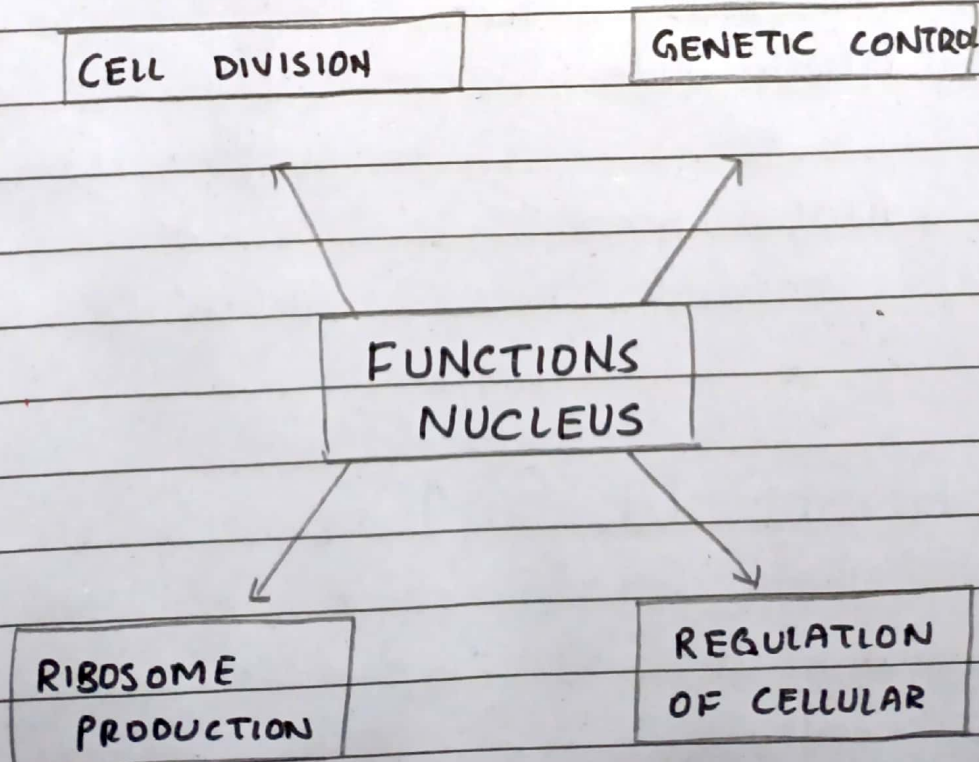 CELL DIVISION
GENETIC CONTROL
FUNCTIONS
NUCLEUS
RIBOSOME
PRODUCTION
REGULATION
OF CELLULAR